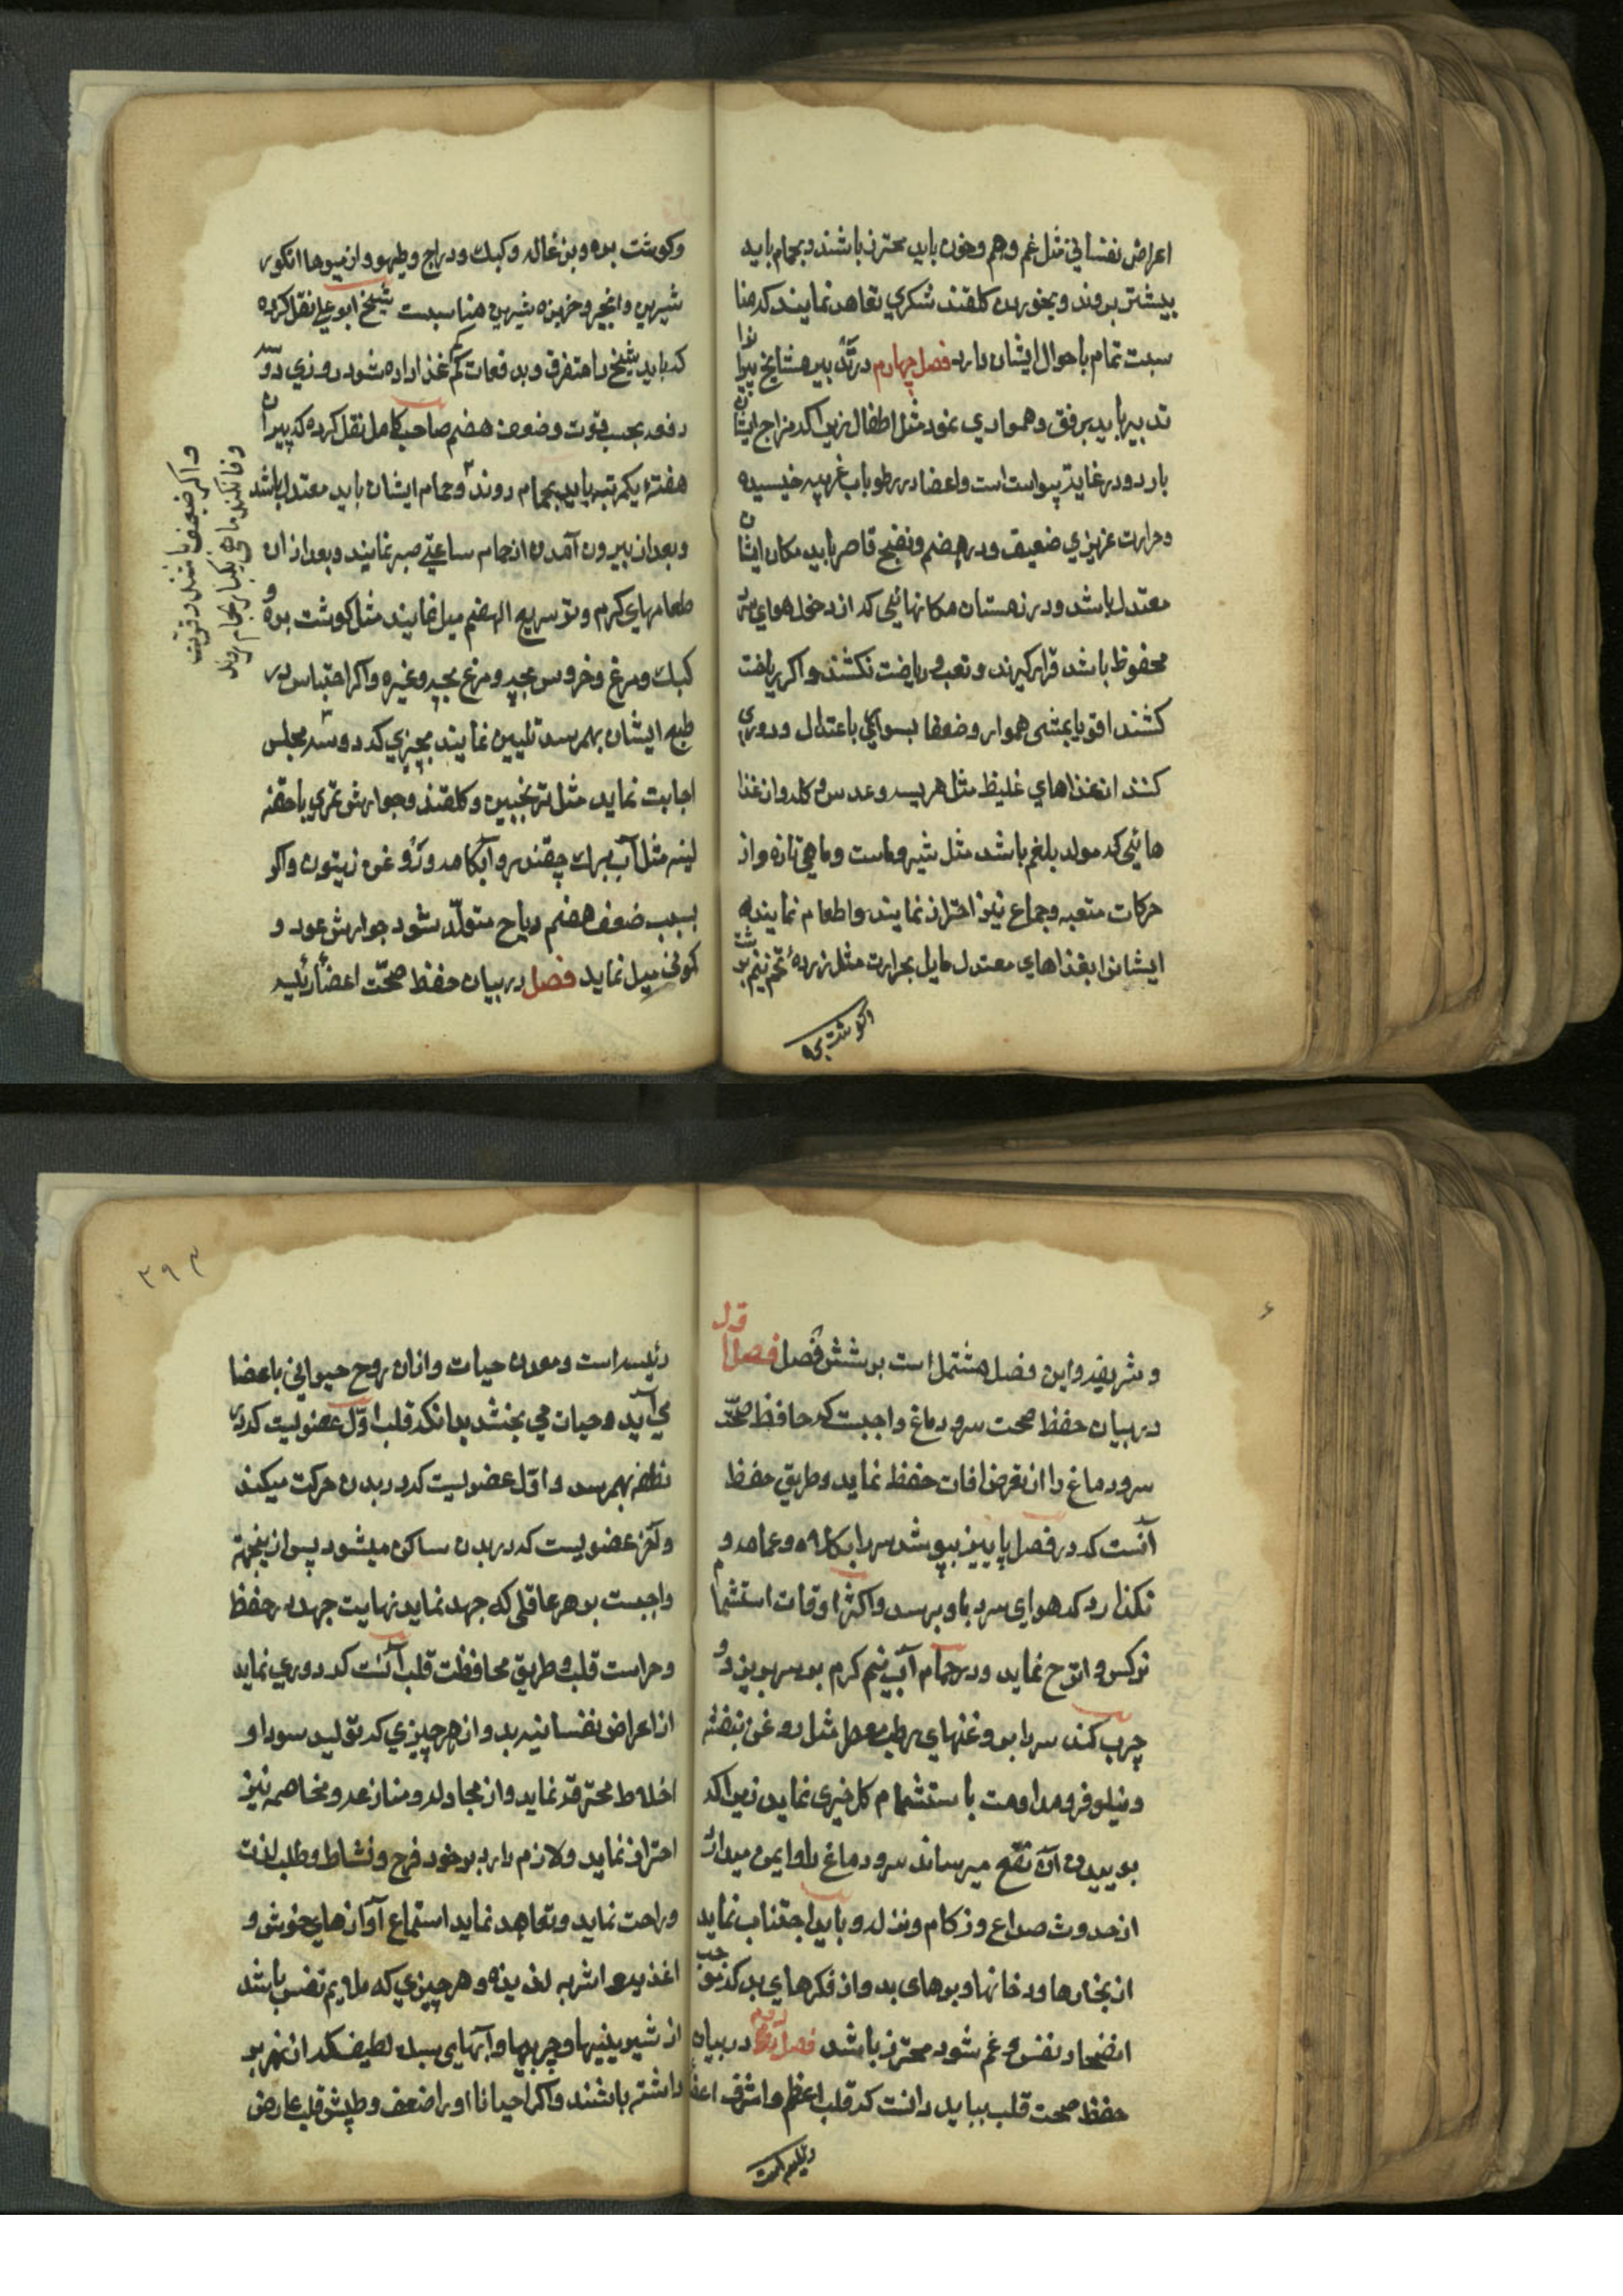 اعراض نفسانی مثل غم و هم و خوف باید محترز باشند و بحمام باید
بیشتر بروند و بخوردن کلقند شکری تعاهد نمایند که منا
سبت تمام باحوال ایشان دارد فصل چهارم در تدبیر مشایخ پیرانرا
تدبیر باید برفق و همواری نمود مثل اطفال زیرا که مزاج ایشان
بارد و در غایة یبوست است و اعضا در رطوبات غریبه خیسیده
و حرارت غریزی ضعیف و در هضم و نضج قاصر باید مکان ایشان
معتدل باشد و در زمستان مکانهائی که از دخل هوای سرد
محفوظ باشد قرار گیرند و تعب و ریاضت نکشند و اکر ریاضت
کشند اقویا بمشی هموار و ضعفا بسواری باعتدال و دوری
کنند از غذاهای غلیظ مثل هریسه و عدس و کله و از غذا
هائی که مولد بلغم باشد مثل شیر و ماست و ماهی تازه و از
حرکات متعبه و جماع نیز احتراز نمایند و اطعام نمایند
ایشانرا بغذاهای معتدل مایل بحرارت مثل زردهٔ تخم نیم برشت
وکوشت بره
وکوشت بره و بزغاله و کبک و دراج و طیهو و از میوها انکور
شیرین و انجیر و خربزه شیرین مناسبست شیخ ابوعلی نقل کرده
که باید شیخ را متفرق و بدفعات کم غذا داده شود روزی دو سه
دفعه بحسب قوت و ضعف هضم صاحب کامل نقل کرده که پیران
هفتهٔ یکمرتبه باید بحمام روند و حمام ایشان باید معتدل باشد
و بعد از بیرون آمدن از حمام ساعتی صبر نمایند و بعد از ان
طعامهای کرم و تر سریع الهضم میل نمایند مثل کوشت بره و
کبک و مرغ و خروس بچه و مرغ بچه و غیره و اکر احتباس در
طبع ایشان بهمرسد تلیین نمایند بچیزی که دو سه مجلس
اجابت نماید مثل ترنجبین و کلقند و جوارش تمری یا حقنه
لینه مثل آب برک چقندر و آبکامه و روغن زیتون و اکر
بسبب ضعف هضم ریاح متولّد شود جوارش عود و
کمونی میل نماید فصل در بیان حفظ صحّت اعضاء رئیسه
و اکر ضعیف باشند و قوت
وفا نکند ماهی یکبار بحمام روند
و شریفه و این فصل مشتمل است بر شش فصل فصل اول
در بیان حفظ صحت سر و دماغ واجبست که حافظ صحّت
سر و دماغ را از تعرض افات حفظ نماید و طریق حفظ
آنست که در فصل پاییز بپوشد سر را بکلاه و عمامه و
نکذارد که هوای سرد باو برسد و اکثر اوقات استشمام
نرکس و اترج نماید و در حمام آب نیم کرم بر سر بریزد و
چرب کند سر را بروغنهای رطب معطر مثل روغن بنفشه
و نیلوفر و مداومت باستشمام کل خیری نماید زیرا که
بوییدن آن نفع میرساند سر و دماغ را و ایمن میدارد
از حدوث صداع و زکام و نزله و باید اجتناب نماید
از بخارها و دخانها و بوهای بد و از فکرهای بد که موجب
انضجار نفس و غم شود محترز باشد فصل دویم در بیان
حفظ صحت قلب بباید دانست که قلب اعظم و اشرف اعضا
رئیسه است
۲۹۳
رئیسه است و معدن حیات و از ان روح حیوانی باعضا
می آید و حیات می بخشد بدانکه قلب اوّل عضویست که در
نطفه بهمرسد و اوّل عضویست که در بدن حرکت میکند
و آخر عضویست که در بدن ساکن میشود پس از ینجهة
واجبست بر هر عاقلی که جهد نماید نهایت جهد در حفظ
و حراست قلب و طریق محافظت قلب آنست که دوری نماید
از اعراض نفسانیه بد و از هر چیزی که تولید سودا و
اخلاط محترقه نماید و از مجادله و منازعه و مخاصمه نیز
احتراز نماید و لازم دارد بر خود فرح و نشاط و طلب لذت
و راحت نماید و تعاهد نماید استماع آوازهای خوش و
اغذیه و اشربه لذیذه و هر چیزی که ملایم نفس باشد
از شیرینیها و چربیها و آبهای سبک لطیف که از نهر بر
داشته باشند و اکر احیانا او را ضعف و طپش قلب عارض